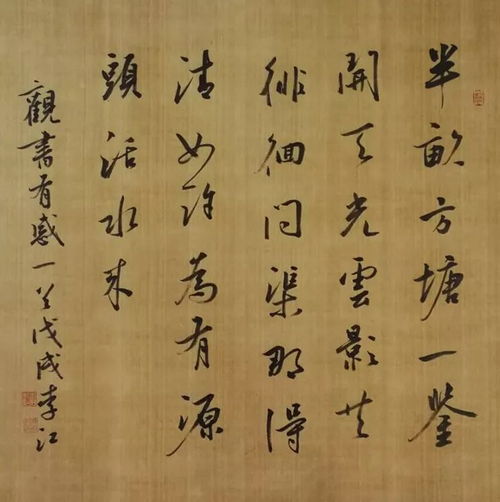 半畝方塘一鉴
開天光雲影共
徘徊問渠那得
清如許為有源
頭活水来
觀書有感一首戊戌李江